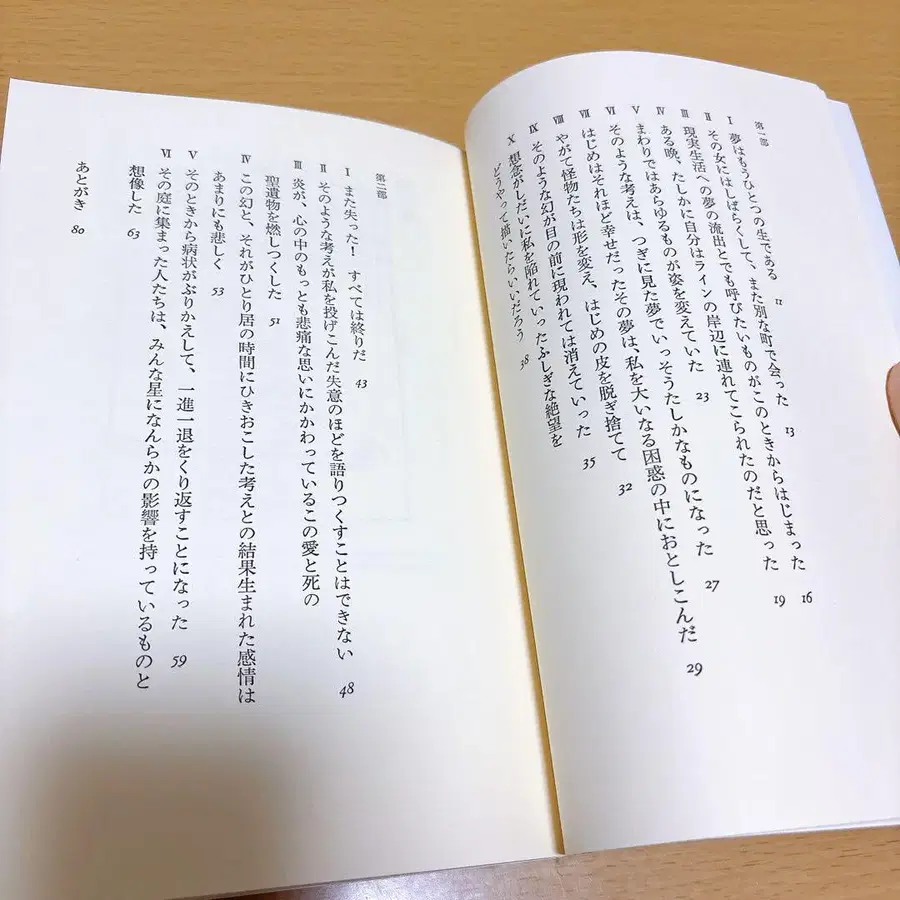 第一部
Ⅰ 夢はもうひとつの生である 11
Ⅱ その女にはしばらくして、また別な町で会った 13
Ⅲ 現実生活への夢の流出とでも呼びたいものがこのときからはじまった 16
Ⅳ ある晩、たしかに自分はラインの岸辺に連れてこられたのだと思った 19
Ⅴ まわりではあらゆるものが姿を変えていた 23
Ⅵ そのような考えは、つぎに見た夢でいっそうたしかなものになった 27
Ⅶ はじめはそれほど幸せだったその夢は、私を大いなる困惑の中におとしこんだ 29
Ⅷ やがて怪物たちは形を変え、はじめの皮を脱ぎ捨てて 32
Ⅸ そのような幻が目の前に現われては消えていった 35
Ⅹ 想念がしだいに私を陥れていったふしぎな絶望を
どうやって描いたらいいだろう 38
第二部
Ⅰ また失った! すべては終りだ 43
Ⅱ そのような考えが私を投げこんだ失意のほどを語りつくすことはできない 48
Ⅲ 炎が、心の中のもっとも悲痛な思いにかかわっているこの愛と死の
聖遺物を燃しつくした 51
Ⅳ この幻と、それがひとり居の時間にひきおこした考えとの結果生まれた感情は
あまりにも悲しく 53
Ⅴ そのときから病状がぶりかえして、一進一退をくり返すことになった 59
Ⅵ その庭に集まった人たちは、みんな星になんらかの影響を持っているものと
想像した 63
あとがき 80